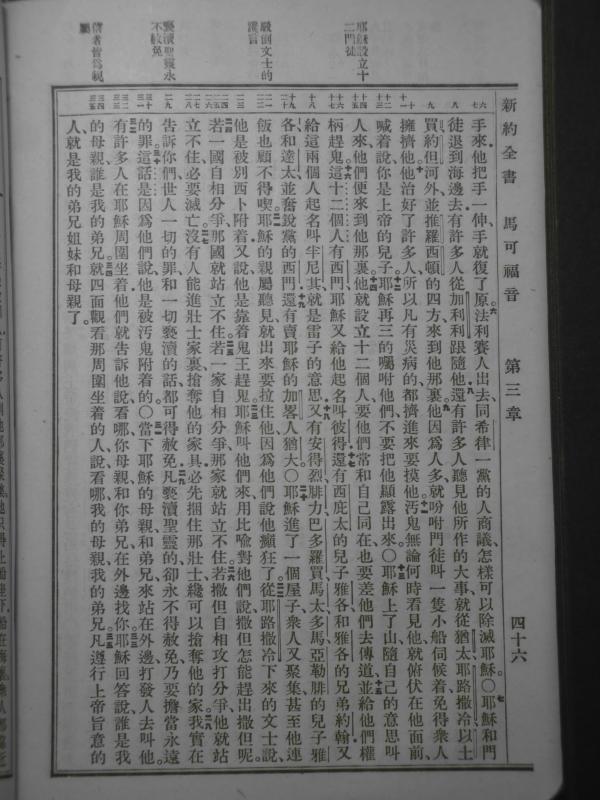 新約全書　馬可福音　第三章　四十六
手來他把手一伸手就復了原法利賽人出去同希律一黨的人商議怎樣可以除滅耶穌〇耶穌和門
徒退到海邊去有許多人從加利利跟隨他還有許多人聽見他所作的大事就從猶太耶路撒冷以土
買約但河外並推羅西頓的四方來到他那裏他因爲人多就吩咐門徒叫一隻小船伺候着免得衆人
擁擠他他治好了許多人所以凡有災病的都擠進來要摸他汚鬼無論何時看見他就俯伏在他面前
喊着說你是上帝的兒子耶穌再三的囑咐他們不要把他顯露出來〇耶穌上了山隨自己的意思叫
人來他們便來到他那裏他就設立十二個人要他們常和自己同在也要差他們去傳道並給他們權
柄趕鬼這十二個人有西門耶穌又給他起名叫彼得還有西庇太的兒子雅各和雅各的兄弟約翰又
給這兩個人起名叫半尼其就是雷子的意思又有安得烈腓力巴多羅買馬太多馬亞勒腓的兒子雅
各和達太並奮銳黨的西門還有賣耶穌的加畧人猶大〇耶穌進了一個屋子衆人又聚集甚至他連
飯也顧不得喫耶穌的親屬聽見就出來要拉住他因爲他們說他癲狂了從耶路撒冷下來的文士說
他是被別西卜附着又說他是靠着鬼王趕鬼耶穌叫他們來用比喩對他們說撒但怎能趕出撒但呢
若一國自相分爭那國就站立不住若一家自相分爭那家就站立不住若撒但自相攻打分爭他就站
立不住必要滅亡沒有人能進壯士家裏搶奪他的家具必先捆住那壯士纔可以搶奪他的家我實在
告訴你們世人一切的罪和一切褻瀆的話都可得赦免凡褻瀆聖靈的卻永不得赦免乃要擔當永遠
的罪這話是因爲他們說他是被汚鬼附着的〇當下耶穌的母親和弟兄來站在外邊打發人去叫他
有許多人在耶穌周圍坐着他們就告訴他說看哪你母親和你弟兄在外邊找你耶穌回答說誰是我
的母親誰是我的弟兄就四面觀看那周圍坐着的人說看哪我的母親我的弟兄凡遵行上帝旨意的
人就是我的弟兄姐妹和母親了
耶穌設立十
二門徒
駁倒文士的
讒言
褻瀆聖靈永
不赦免
信者皆爲親